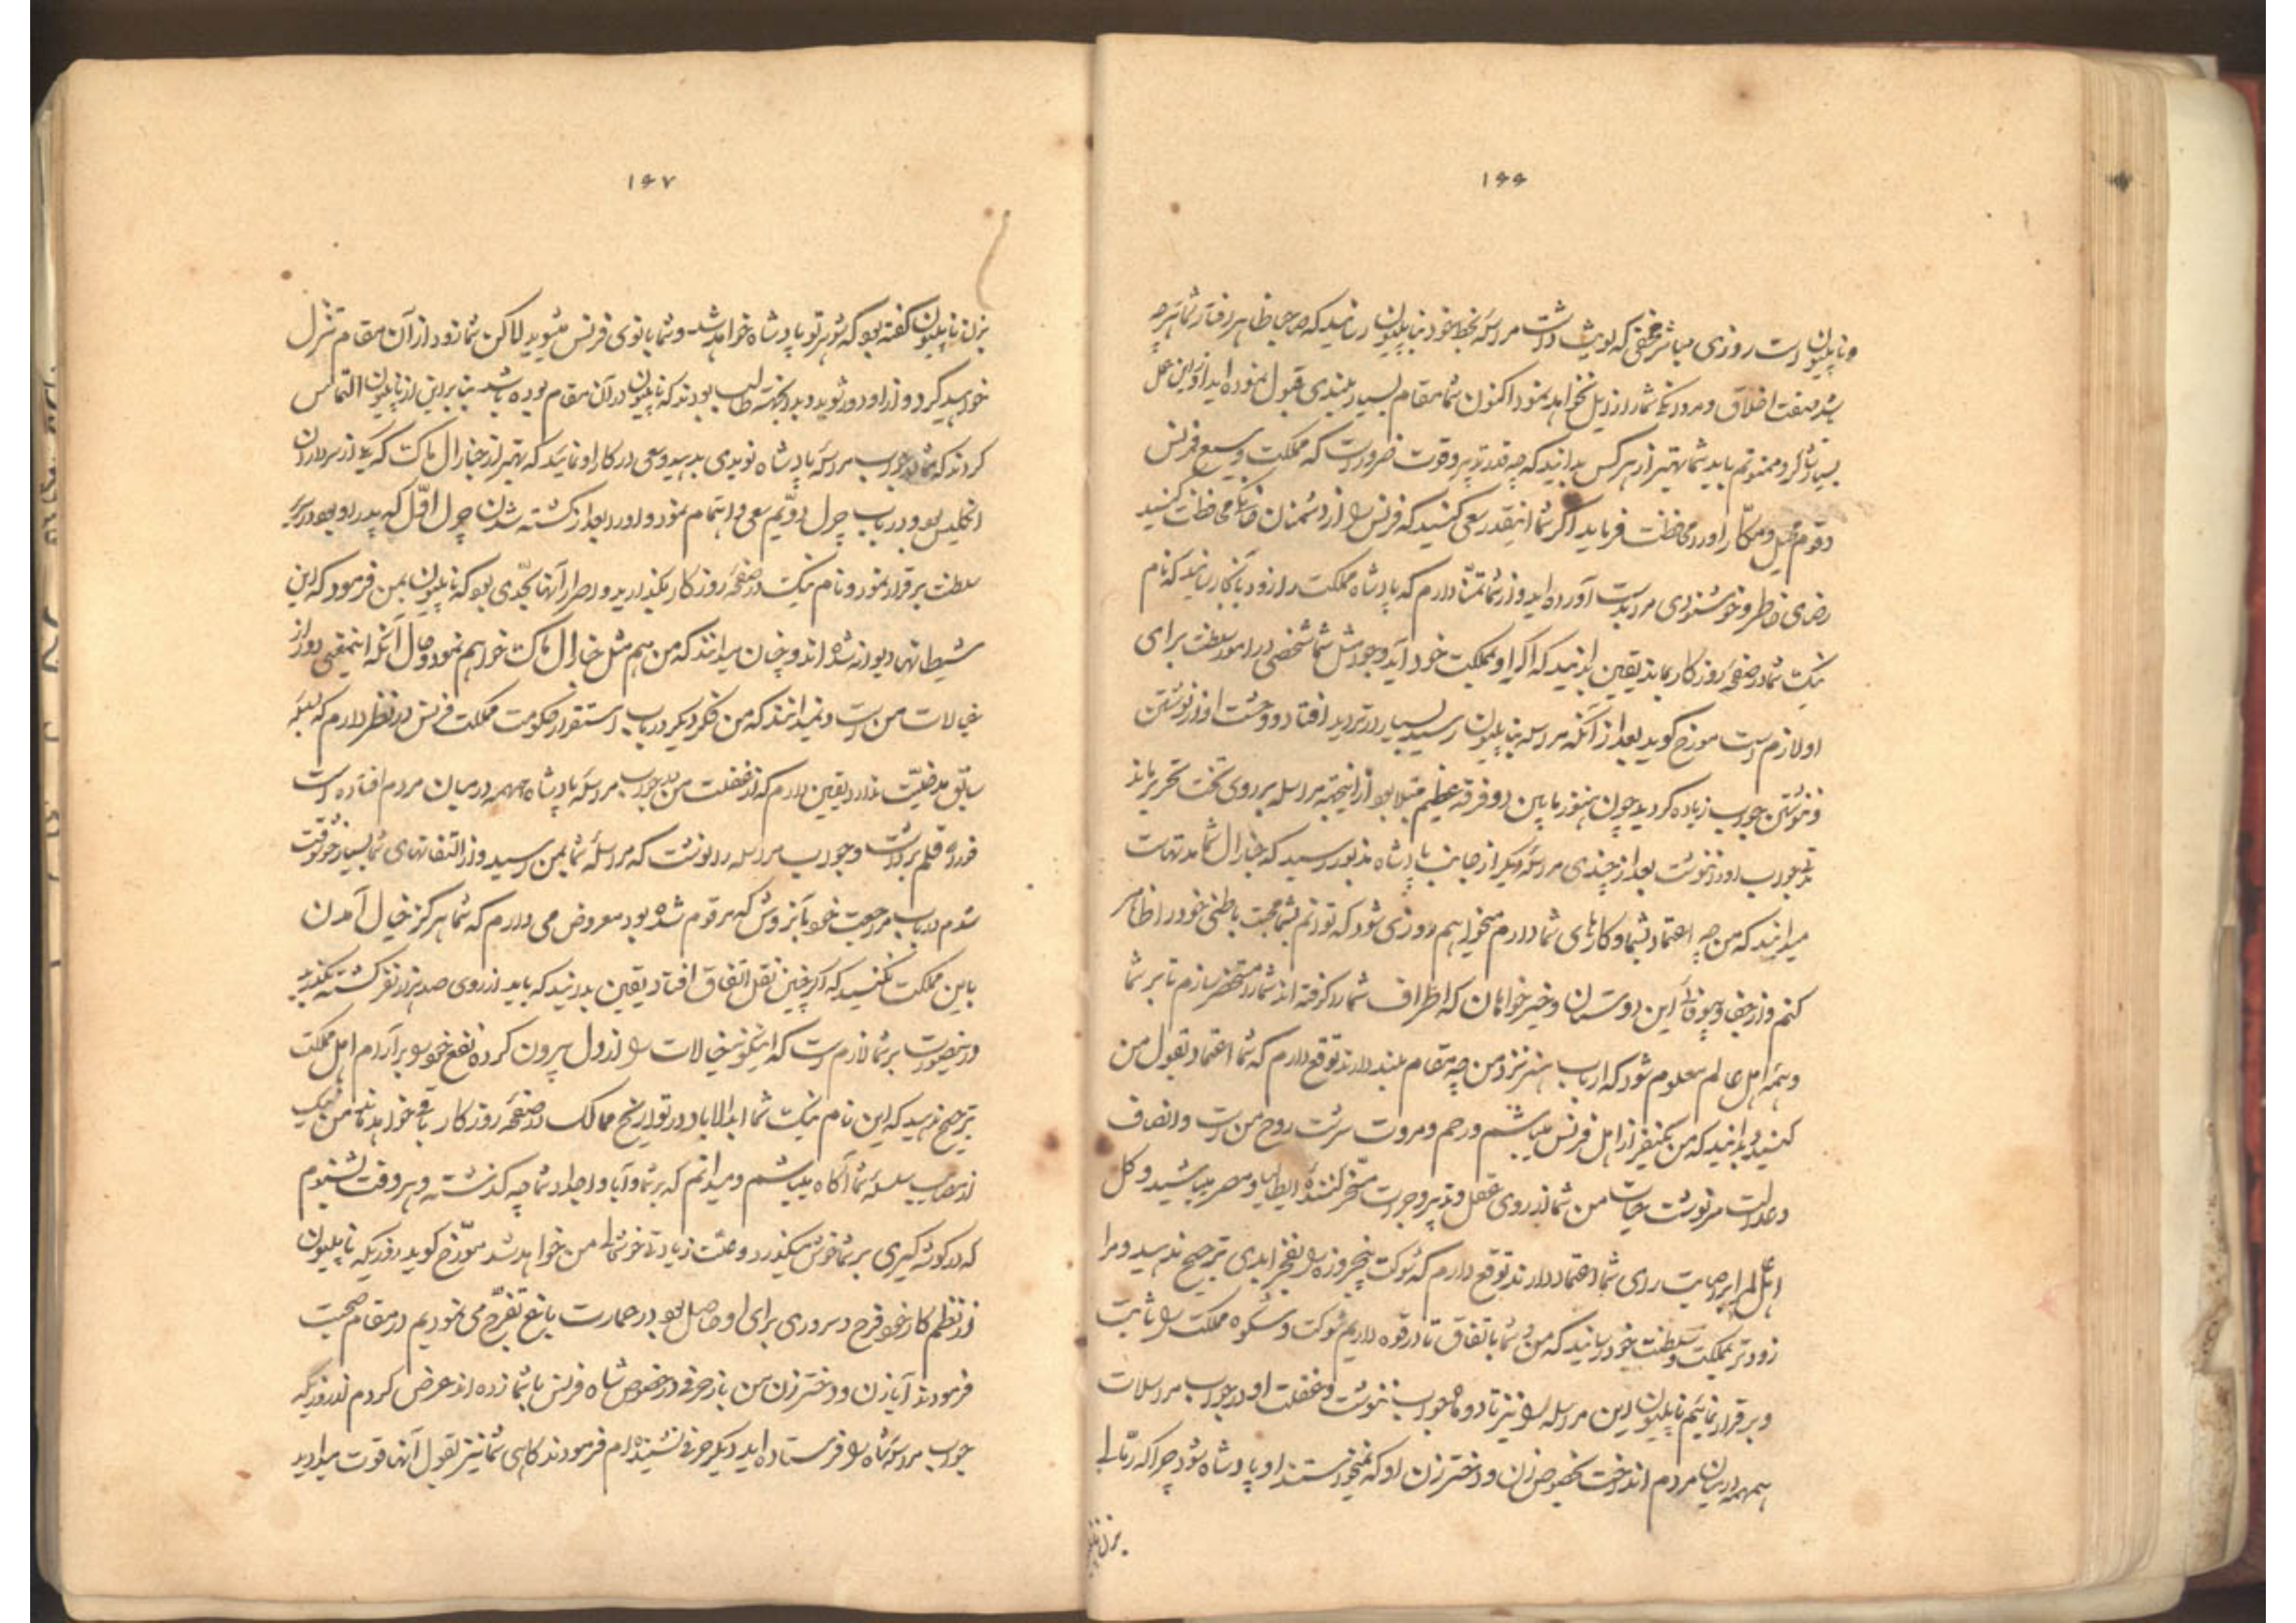 ۱۶۶
ناپلیون است روزی مباشر مخفی که لویش داشت مراسله بخط خود بناپلیون رسانید که صاحبا ظاهر رفتار شما هرچه
باشد صفت اخلاق و مردانگی شما را زایل نخواهد نمود اکنون شما مقام بسیار بلندی قبول نموده‌اید از این عمل
بسیار شاکر و ممنونم باید شما بهتر از هر کس بدانید که چه قدر تدبیر و قوت ضرور است که مملکت وسیع فرنس
و قوم محیل و مکار او را محافظت فرماید اگر شما اینقدر سعی کنید که فرنس را از دشمنان خانگی محافظت کنید
رضای خاطر و خوشنودی مرا بدست آورده‌اید و از شما تمنا دارم که پادشاه مملکت را زود بآنکار رسانید که نام
نیک شما در صفحه روزکار بماند یقین بدانید که اگر او بمملکت خود آید وجود مثل شما شخصی در امور سلطنت برای
او لازم است مورخ کوید بعد از آنکه مراسله بناپلیون رسید بسیار در تردید افتاد و وحشت او از نوشتن
و ننوشتن جواب زیاده کردید چون هنوز مابین دو فرقه عظیم مبتلا بود از اینجهة مراسله بر روی تخت تحریر ماند
جواب او را ننوشت بعد از چندی مراسله دیکر از جانب پادشاه مذبور رسید که جنارال شما مدتهاست
میدانید که من چه اعتماد بشما و کارهای شما دارم میخواهم روزی شود که توانم بشما محبت باطنی خود را ظاهر
کنم و از جفا و بیوفائی این دوستان و خیرخواهان که اطراف شما را کرفته‌اند شما را مستحضر سازم تا بر شما
و همه اهل عالم معلوم شود که ارباب هنر نزد من چه مقام بلند دارند توقع دارم که شما اعتماد بقول من
کنید و بدانید که من یکنفر از اهل فرنس میباشم و رحم و مروت سرشت روح من است و انصاف
و عدالت سرنوشت حیات من شما از روی عقل و تدبیر و جرات مسخر کننده ایطالیا و مصر میباشید و کل
اهل عالم بر اصابت رای شما اعتماد دارند توقع دارم که شوکت پنجروزه را بفخر ابدی ترجیح ندهید و مرا
زودتر بمملکت و سلطنت خود رسانید که من و شما باتفاق تا در قوه داریم شوکت و شکوه مملکت را ثابت
و برقرار نمائیم ناپلیون این مراسله را نیز تا دو ماه جواب ننوشت و غفلت او در جواب مراسلات
همهمه در میان مردم انداخت بخصوص زن و دختر زن او که نمیخواستند او پادشاه شود چرا که رمالی
بزن ناپلیون
۱۶۷
بزن ناپلیون کفته بود که شوهر تو پادشاه خواهد شد و شما بانوی فرنس میشوید لاکن شما زود از آن مقام تنزل
خواهید کرد و از او دور شوید و بدبختی طالب بودند که ناپلیون در آن مقام بوده باشد بنابراین از ناپلیون التماس
کردند که شما در جواب مراسله پادشاه نویدی بدهید و سعی در کار او نمائید که بهتر از جنارال ماکت که یکی از سرداران
انکلیس بود و در باب چرل دویم سعی و اهتمام نمود و او را بعد از کشته شدن چرل اول که پدر او بود در سریر
سلطنت برقرار نمود و نام نیک در صفحه روزکار بکذارید و اصرار آنها بحدی بود که ناپلیون بمن فرمود که این
شیطانها دیوانه شده‌اند و چنان میدانند که من هم مثل جنارال ماکت خواهم نمود و حال آنکه اینمعنی دور از
خیالات من است و نمیدانند که من فکر دیکر در باب استقرار حکومت مملکت فرنس در نظر دارم که بعمل
سابق مدخلیت ندارد یقین دارم که از غفلت من بجواب مراسله پادشاه همهمه در میان مردم افتاده است
فورا قلم برداشت و جواب مراسله را نوشت که مراسله شما بمن رسید و از التفاتهای شما بسیار خوشوقت
شدم در باب مراجعت خود بآنروش که مرقوم شده بود معروض می دارم که شما هرکز خیال آمدن
باین مملکت نکنید که اگر چنین نقل اتفاق افتاد یقین بدانید که باید از روی صد هزار نفر کشته بکذرید
در اینصورت بر شما لازم است که اینکونه خیالات را از دل بیرون کرده نفع خود را بر آرام اهل مملکت
ترجیح ندهید که این نام نیک شما ابدالاباد در تواریخ ممالک و صفحه روزکار باقی خواهد ماند من نیک
از مصائب سلسله شما آکاه میباشم و میدانم که بر شما و آبا و اجداد شما چه کذشته و هر وقت بشنوم
که در کوشه کیری بر شما خوش میکذرد باعث زیادتی خوشحالی من خواهد شد مورخ کوید روزیکه ناپلیون
از نظم کار خود فرح و سروری برای او حاصل بود در عمارت باغ تفرج می نمودیم در مقام صحبت
فرمودند آیا زن و دختر زن من باز حرفی در خصوص شاه فرنس با شما زده‌اند عرض کردم از روزیکه
جواب مراسله شاه را فرستاده‌اید دیکر حرفی نشنیده‌ام فرمودند کاهی شما نیز بقول آنها قوت میدادید